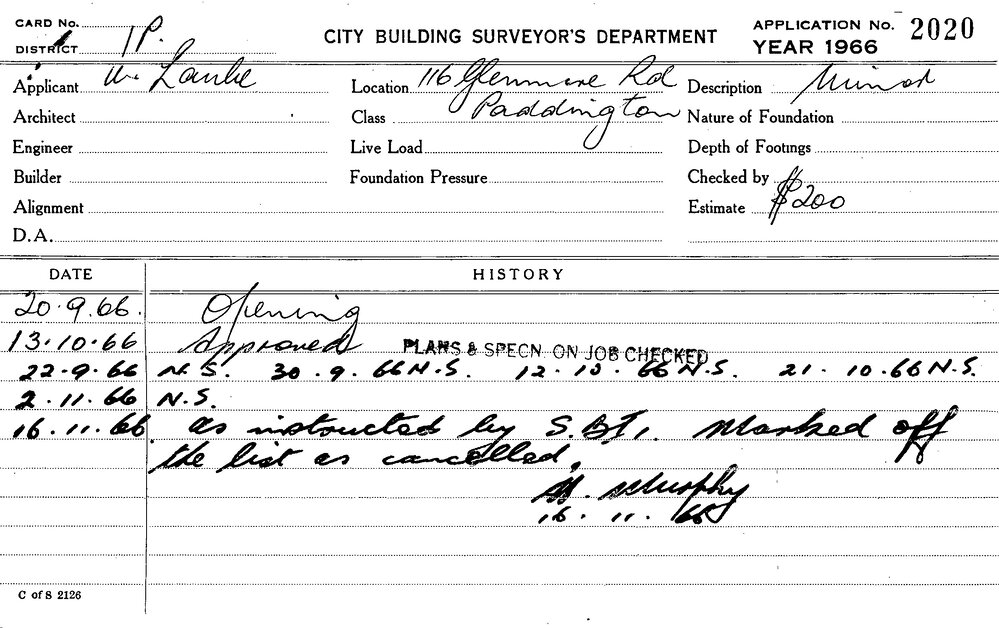 CARD No.
DISTRICT 1P.
CITY BUILDING SURVEYOR'S DEPARTMENT
APPLICATION No. 2020
YEAR 1966
Applicant
Location 116 Glenmore Rd
Paddington
Description Minor
Architect
Class
Nature of Foundation
Engineer
Live Load
Depth of Footings
Builder
Foundation Pressure
Checked by
Alignment
Estimate $200
D.A.
DATE HISTORY
20.9.66. Opening
13.10.66 Approved PLANS & SPECN. ON JOB CHECKED
22.9.66 N.S. 30.9.66 N.S. 12.10.66 N.S. 21.10.66 N.S.
2.11.66 N.S.
16.11.66 as instructed by S.B.I. Marked off
the list as cancelled.
Murphy
16.11.66
C of S 2126